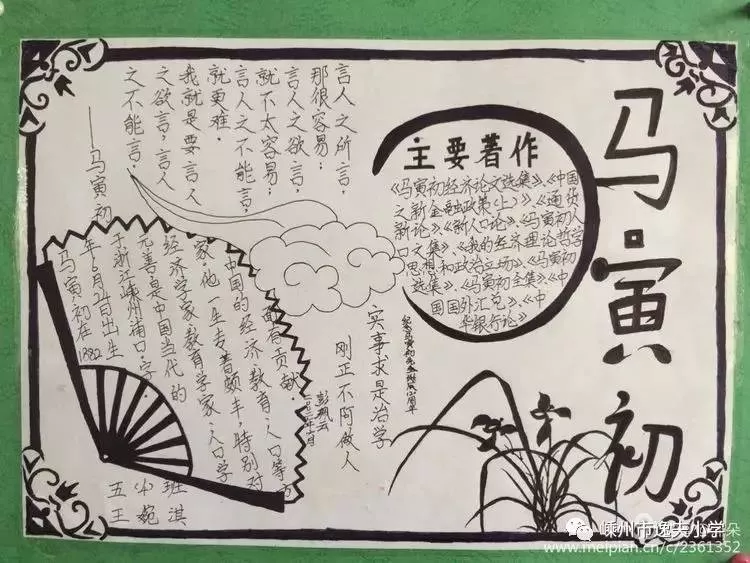 马寅初
主要著作
《马寅初经济论文选集》、《中国
之新金融政策(上)》、《通货
新论》、《新人口论》、《马寅初人
口文集》、《我的经济理论哲学
思想和政治立场》、《马寅初
选集》、《马寅初全集》、《中
国国外汇兑》、《中
华银行论》
言人之所言，
那很容易；
言人之欲言，
就不太容易；
言人之不能言，
就更难。
我就是要言人
之欲言，言人
之不能言。
——马寅初
实事求是治学
刚正不阿做人
马寅初在1882
年6月24日出生
于浙江嵊州浦口，字
元善是中国当代的
经济学家、教育学家、人口学
家。他一生专著颇丰，特别对
中国的经济、教育、人口等方
面有贡献。
五(4)班
王菀淇
嵊州市逸夫小学
www.meipian.cn/c/2361352